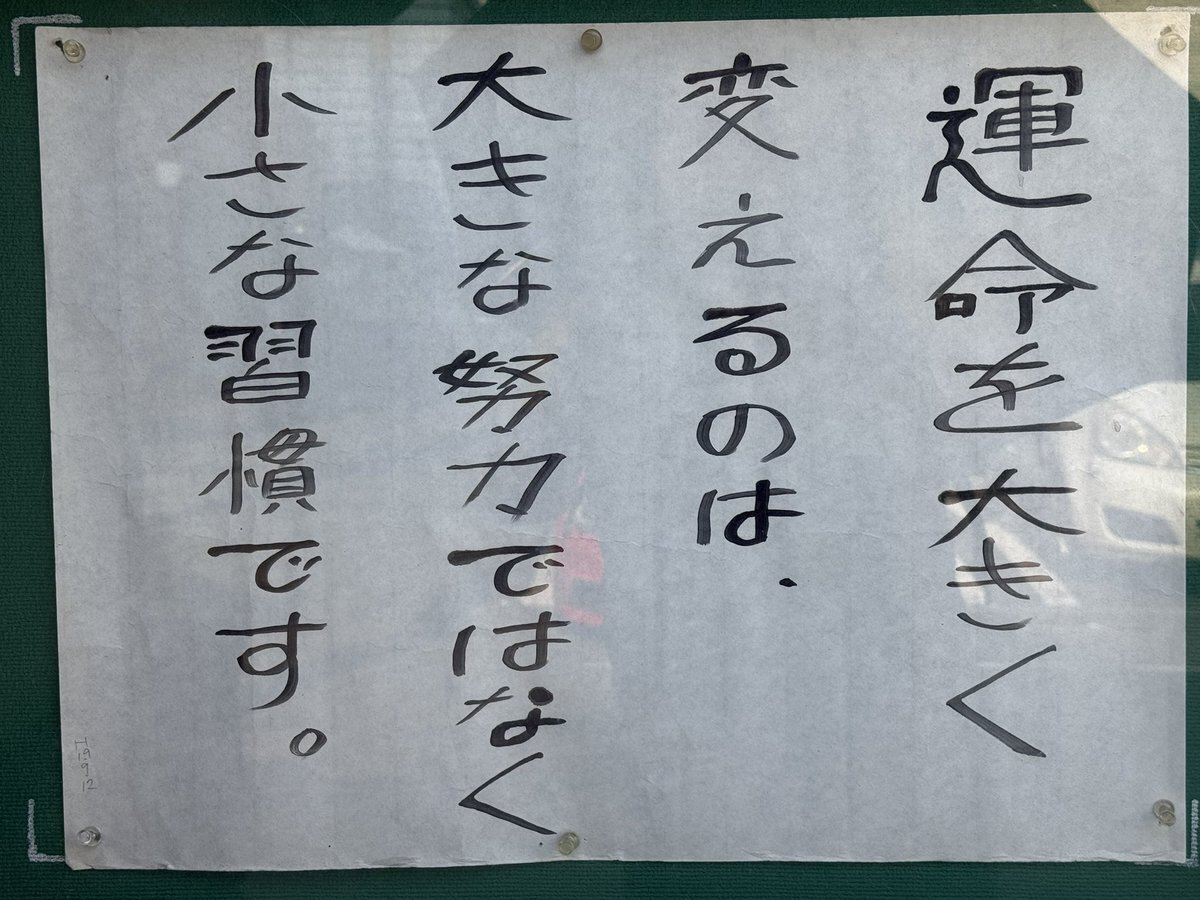 運命を大きく
変えるのは、
大きな努力ではなく
小さな習慣です。
H19.9.12